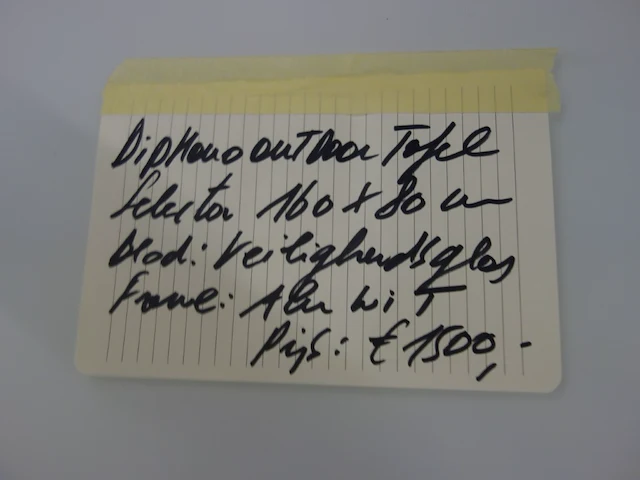 Diphano outdoor Tafel
Selecta 160 x 80 cm
Blad: Veiligheidsglas
Frame: Alu wit
Prijs: € 1500,-